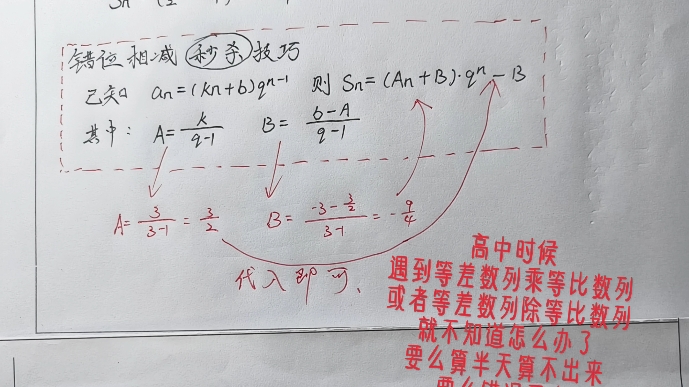 错位相减 秒杀 技巧
已知 an=(kn+b)qⁿ⁻¹ 则 Sn=(An+B)·qⁿ-B
其中: A=k/(q-1) B=(b-A)/(q-1)
A=3/(3-1)=3/2 B=(-3-3/2)/(3-1)=-9/4
代入即可、
高中时候
遇到等差数列乘等比数列
或者等差数列除等比数列
就不知道怎么办了
要么算半天算不出来